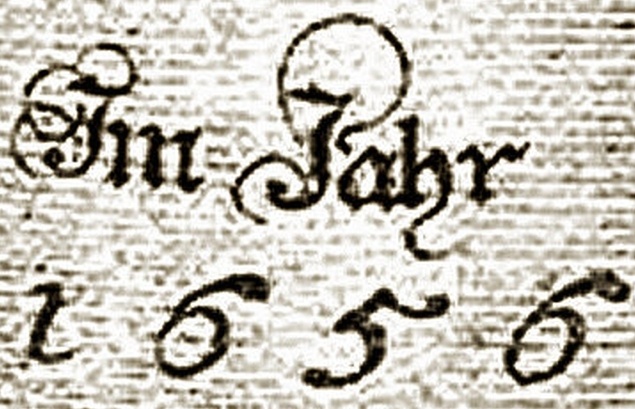 Im Jahr
1656